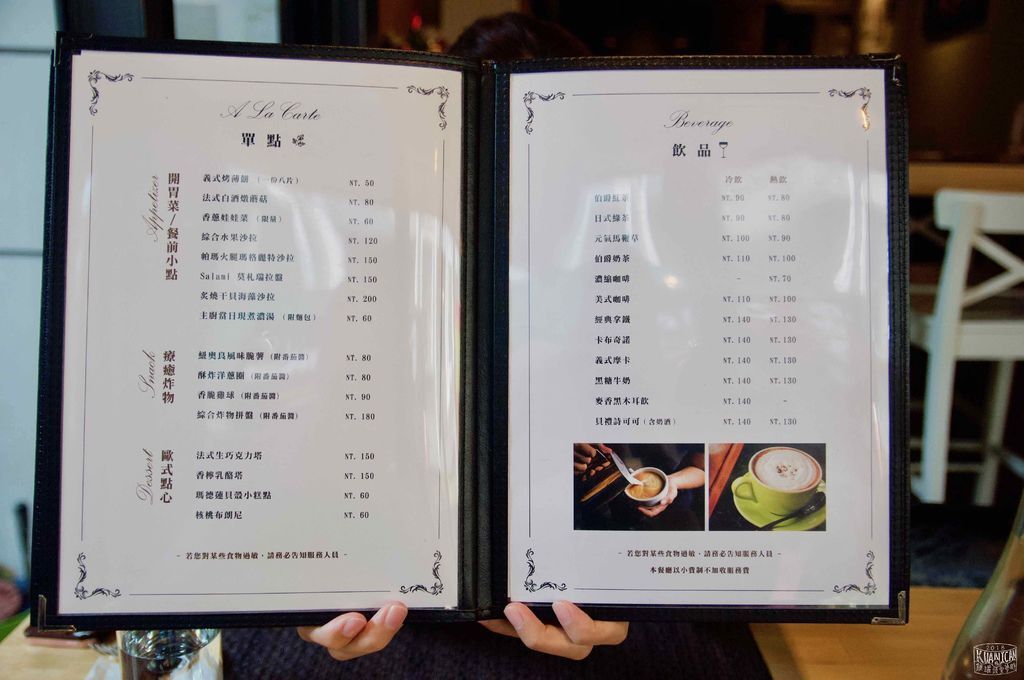 A La Carte
單點
Appetizer
開胃菜/餐前小點
義式烤薄餅（一份八片） NT. 50
法式白酒燉蘑菇 NT. 80
香蔥娃娃菜（限量） NT. 60
綜合水果沙拉 NT. 120
帕瑪火腿瑪格麗特沙拉 NT. 150
Salami 莫札瑞拉盤 NT. 150
炙燒干貝海藻沙拉 NT. 200
主廚當日現煮濃湯（附麵包） NT. 60
Snack
療癒炸物
紐奧良風味脆薯（附番茄醬） NT. 80
酥炸洋蔥圈（附番茄醬） NT. 80
香脆雞球（附番茄醬） NT. 90
綜合炸物拼盤（附番茄醬） NT. 180
Dessert
歐式點心
法式生巧克力塔 NT. 150
香檸乳酪塔 NT. 150
瑪德蓮貝殼小糕點 NT. 60
核桃布朗尼 NT. 60
- 若您對某些食物過敏、請務必告知服務人員 -
Beverage
飲品
冷飲 熱飲
伯爵紅茶 NT. 90 NT. 80
日式綠茶 NT. 90 NT. 80
元氣馬鞭草 NT. 100 NT. 90
伯爵奶茶 NT. 110 NT. 100
濃縮咖啡 - NT. 70
美式咖啡 NT. 110 NT. 100
經典拿鐵 NT. 140 NT. 130
卡布奇諾 NT. 140 NT. 130
義式摩卡 NT. 140 NT. 130
黑糖牛奶 NT. 140 NT. 130
麥香黑木耳飲 NT. 140 -
貝禮詩可可（含奶酒） NT. 140 NT. 130
- 若您對某些食物過敏、請務必告知服務人員 -
本餐廳以小費制不加收服務費
2018
KUANYCAN